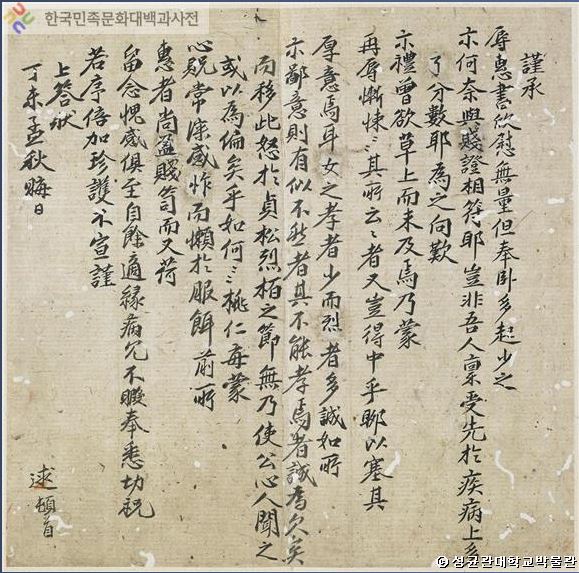 한국민족문화대백과사전
謹承
辱惠書欣慰無量但奉卧多起少之
示何奈與賤證相符耶豈非吾人稟受先於疾病上多
了分數耶爲之向歎
示禮曾欲草上而未及焉乃蒙
再辱慚悚〻其所云〻者又豈得中乎聊以塞其
厚意焉耳女之孝者少而烈者多誠如所
示鄙意則有似不然者其不能孝焉者誠爲欠矣
而移此怒於貞松烈栢之節無乃使公心人聞之
或以爲偏矣乎如何〻桃仁每蒙
心貺常深感怍而懶於服餌前所
惠者尚盈賤笥而又荷
留念愧感俱至自餘適緣病冗不暇奉悉切祝
若序倍加珍護不宣謹
上答狀
丁未孟秋晦日
逑頓首
ⓒ 성균관대학교박물관